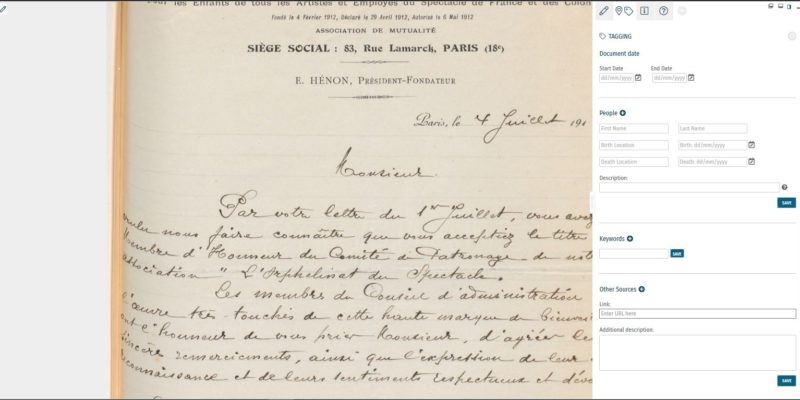 Pour les Enfants de tous les Artistes et Employés du Spectacle de France et des Colon
Fondé le 4 Février 1912, Déclaré le 29 Avril 1912, Autorisé le 6 Mai 1912
ASSOCIATION DE MUTUALITÉ
SIÈGE SOCIAL : 83, Rue Lamarck, PARIS (18e)
E. HÉNON, Président-Fondateur
Paris, le 4 Juillet 191
Monsieur
Par votre lettre du 1er Juillet, vous avez
voulu nous faire connaître que vous acceptiez le titre
Membre d'Honneur du Comité de Patronage de not
association " L'Orphelinat du Spectacle.
Les membres du Conseil d'administration
d'œuvre très-touchés de cette haute marque de bienvei
ont l'honneur de vous prier Monsieur, d'agréer le
sincère remerciments, ainsi que l'expression de leur
reconnaissance et de leurs sentiments respectueux et dévo
TAGGING
Document date
Start Date End Date
dd/mm/yyyy dd/mm/yyyy
People
First Name Last Name
Birth Location Birth: dd/mm/yyyy
Death Location Death: dd/mm/yyyy
Description:
SAVE
Keywords
SAVE
Other Sources
Link:
Enter URL here
Additional description:
SAVE